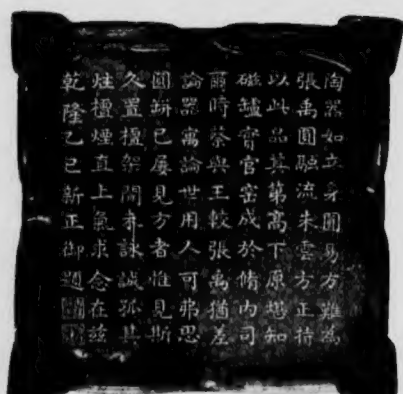 陶器如立身圓易方難為
張禹圓融流朱雲方正持
以此品其第高下原堪知
磁爐實官窑成於脩內司
爾時蔡與王較張禹猶差
論器寓論世用人可弗思
圓缾已屢見方者惟見斯
久置架閒詠誠孤其
炷檀煙直上氣求念在兹
乾隆乙巳新正御題